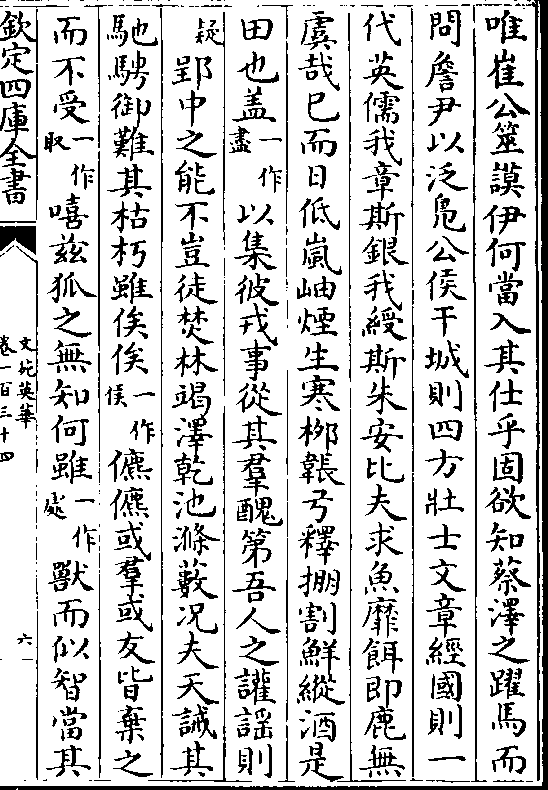 唯崔公筮謨伊何當入其仕乎固欲知蔡澤之躍馬而
問詹尹以泛鳬公侯干城則四方壯士文章經國則一
代英儒我章斯銀我綬斯朱安比夫求魚靡餌即鹿無
虞哉已而日低嵐岫煙生寒栁韔弓釋掤割鮮縱酒是
田也蓋一作盡以集彼戎事從其羣醜第吾人之讙謡則
疑郢中之能不豈徒焚林竭澤乾池滌藪况夫天誡其
馳騁御難其枯朽雖俟俟一作侯儦儦或羣或友皆棄之
而不受一作取嘻兹狐之無知何雖一作處獸而似智當其
欽定四庫全書
文苑英華
卷一百三十四
六